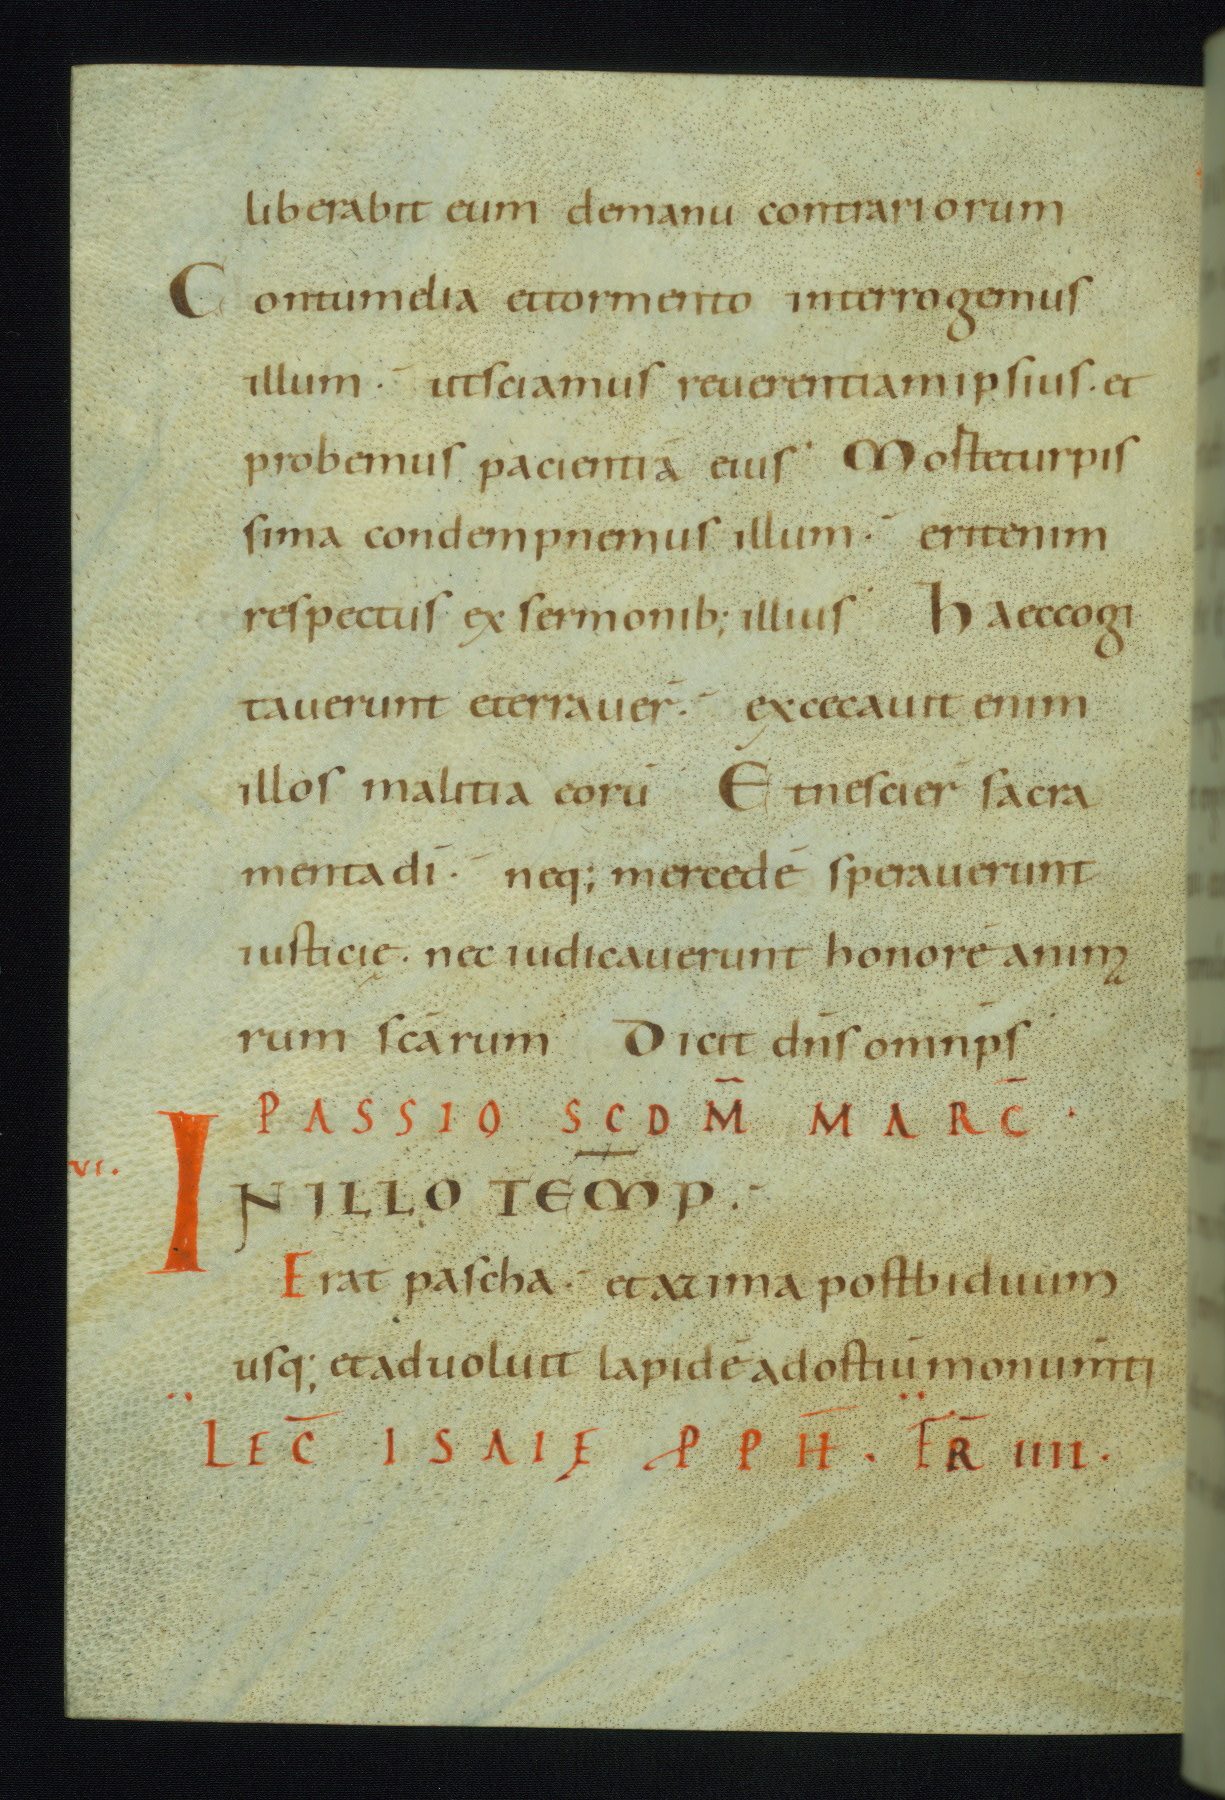 liberabit eum demanu contrariorum
Contumelia ettormento interrogemus
illum. utsciamus reuerentiamipsius. et
probemus pacientiā eius Morteturpis
sima condempnemus illum. eritenim
respectus ex sermonib; illius haeccogi
tauerunt eterrauer̄. excecauit enim
illos malitia eorū Etnescier̄ sacra
menta dī. neq; mercedē sperauerunt
iusticię. nec iudicauerunt honorē anim̨
rum scārum Dicit dn̄s omnip̄s
PASSIO SCDM̄ MARC̄.
vi.
INILLO TEMP.
Erat pascha. etazima postbiduum
usq; etaduoluit lapidē adostiū monum̄ti
LEC̄ ISAIĘ PPH̄. FR̄ IIII.